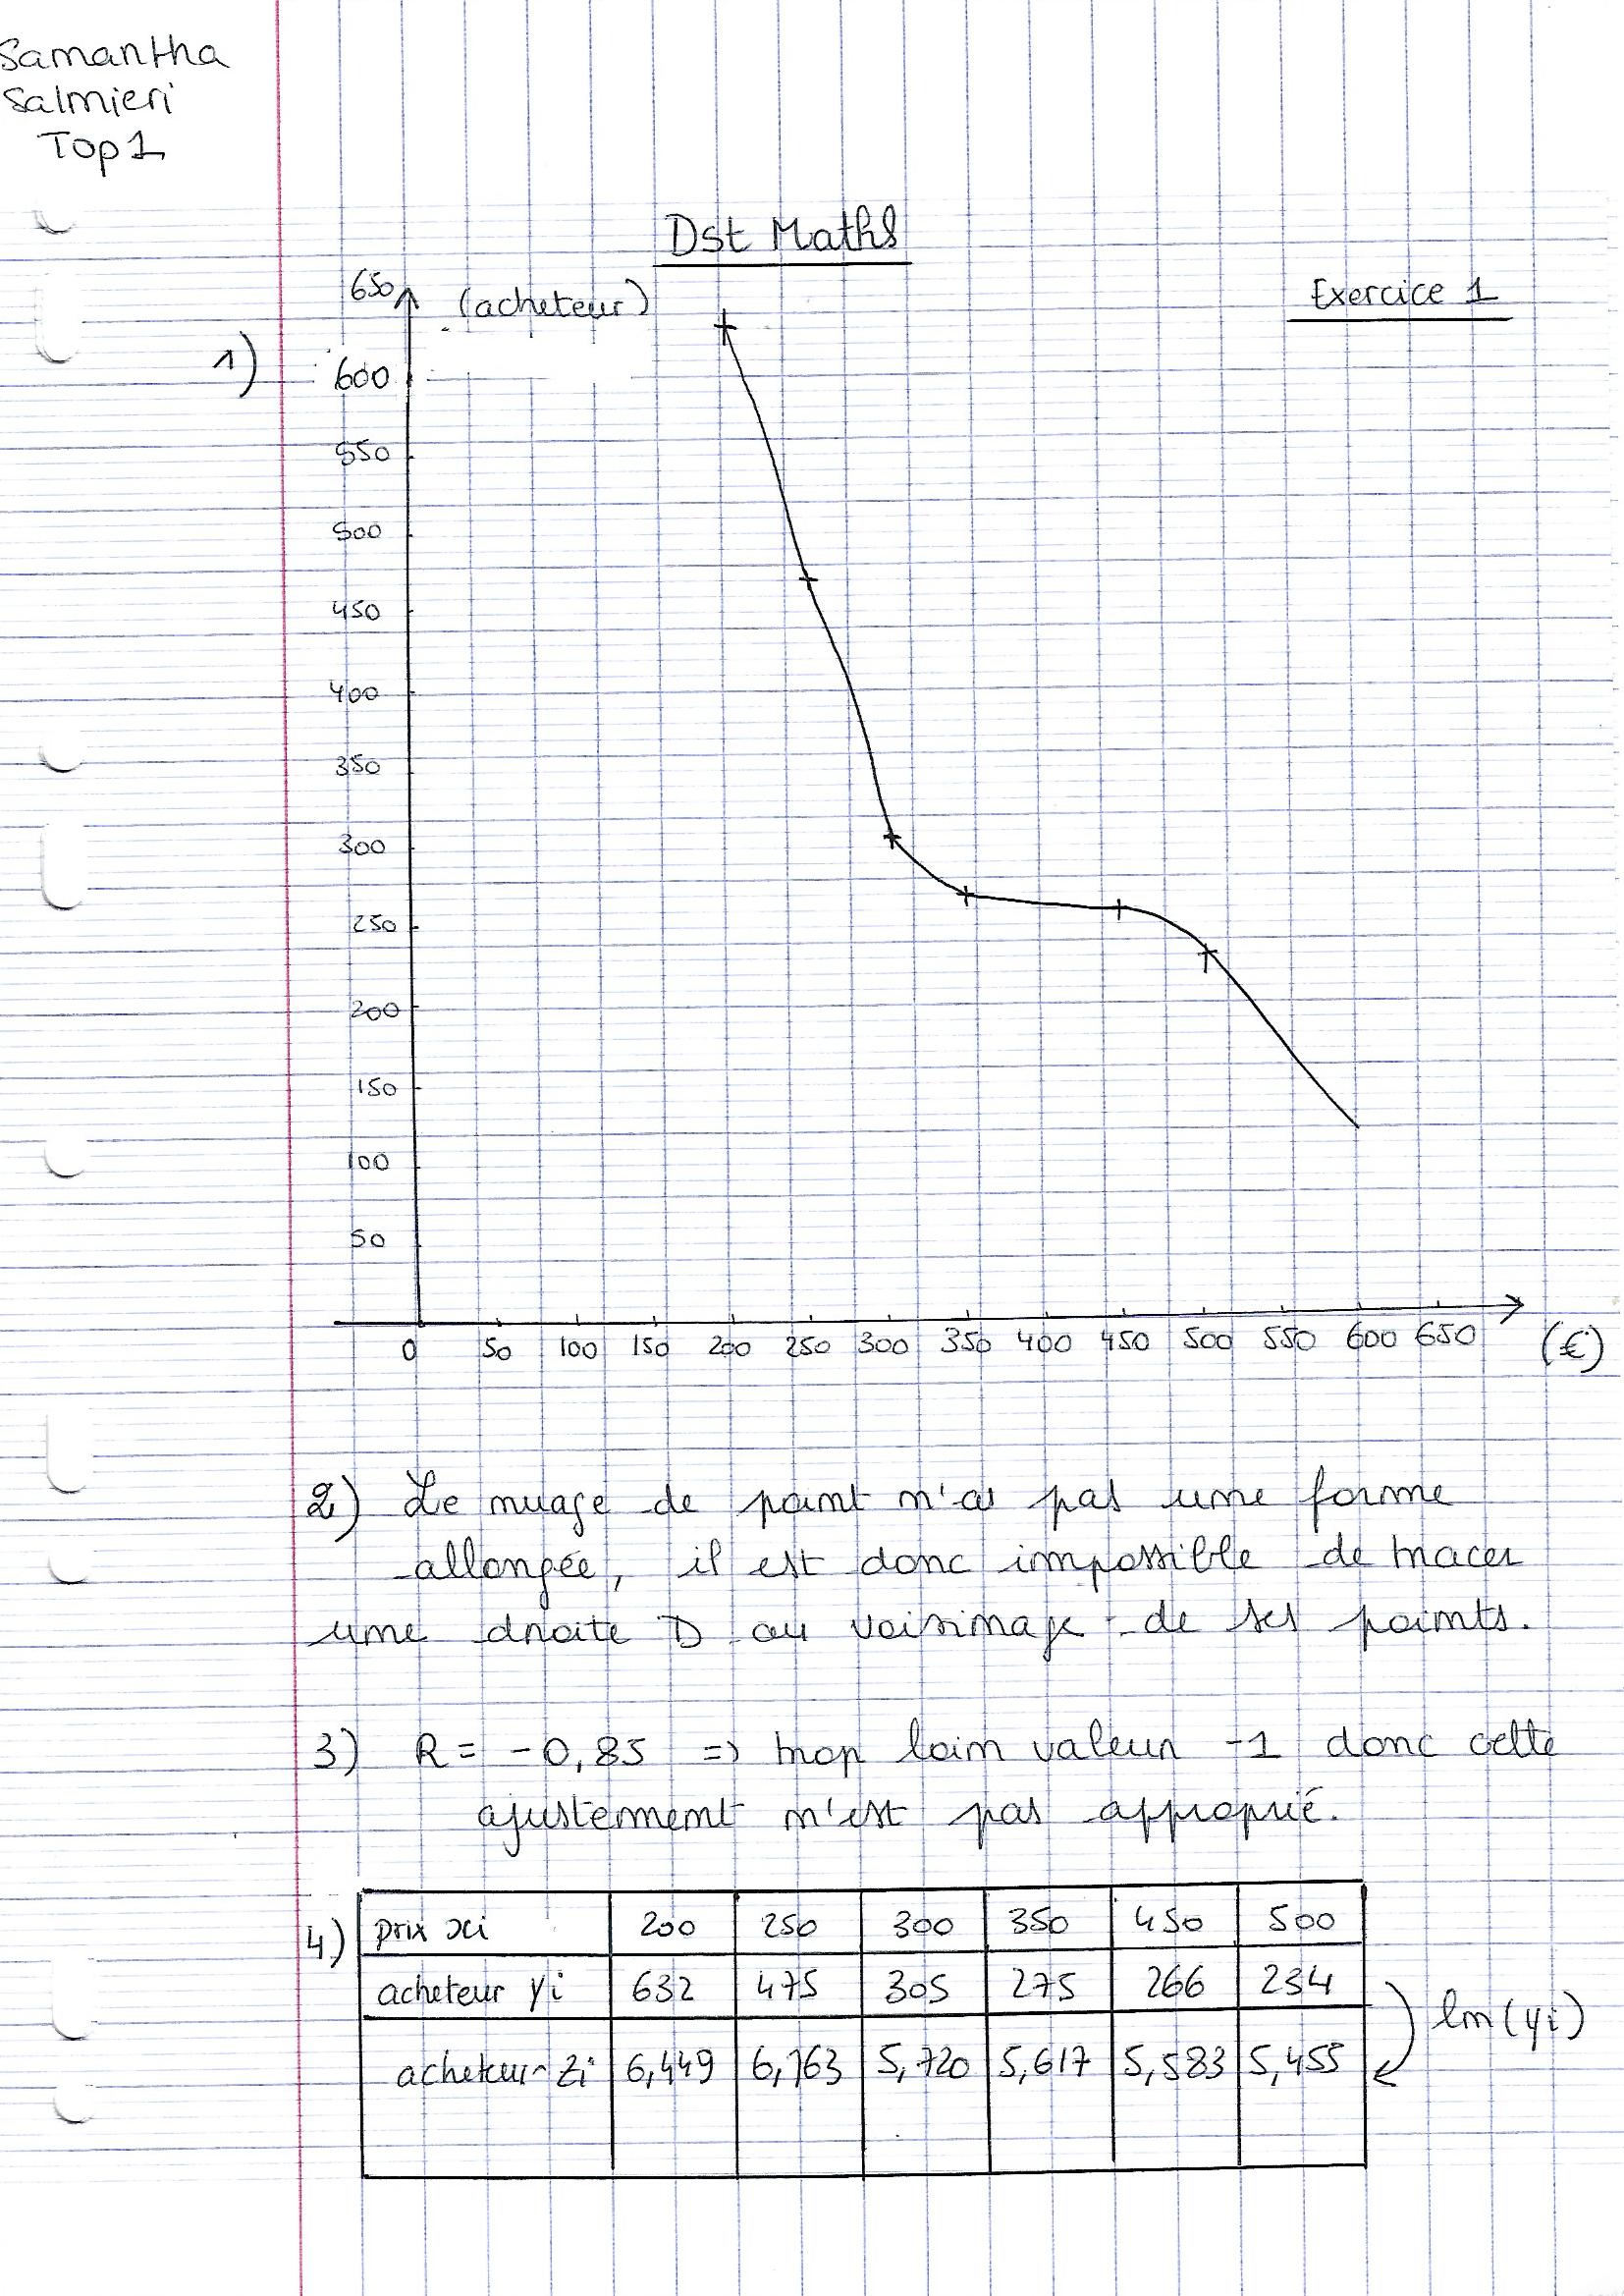 Samantha
Salmieri
Top 1
Dst Maths
Exercice 1
1)
(acheteur)
650
600
550
500
450
400
350
300
250
200
150
100
50
0 50 100 150 200 250 300 350 400 450 500 550 600 650 (€)
2) Le nuage de point n'a pas une forme
allongée, il est donc impossible de tracer
une droite D au voisinage de ses points.
3) R = -0,85 => trop loin valeur -1 donc cette
ajustement n'est pas approprié.
4) prix xi 200 250 300 350 450 500
acheteur yi 632 475 305 275 266 234
ln(yi)
acheteur zi 6,449 6,163 5,720 5,617 5,583 5,455